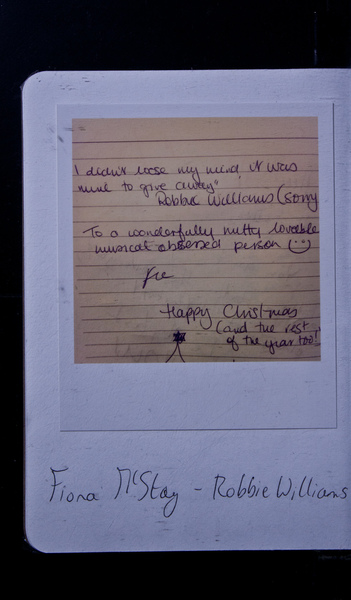 "I didn't loose my mind, it was
mine to give away"
Robbie Williams (sorry
To a wonderfully nutty lovable
musical obsessed person
Happy Christmas
(and the rest
of the year too!
Fiona McStay - Robbie Williams